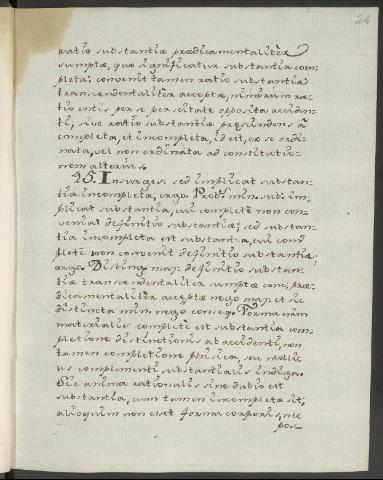 24
ratio substantiæ prædicamentalitèr
sumptæ, quo significatur substantia com-
pleta: convenit tamen ratio substantiæ
transcendentalitèr acceptæ, nimirum ra-
tio entis per se perseitate opposita acciden-
ti, sive ratio substantiæ præscindens à
completa, et incompleta, id est, ex se ordi-
nata, vel non ordinata ad constitutio-
nem alterius.
25. Insurges: sed implicat substan-
tia incompleta, ergo. Prob. min. sic: im-
plicat substantia, cui completè non con-
veniat definitio substantiæ; sed substan-
tia incompleta est substantia, cui com
pletè non convenit definitio substantiæ:
ergo. Disting. maj: definitio substan-
tiæ transcendentalitèr sumptæ conc; præ-
dicamentalitèr acceptæ nego maj: et sic
distincta min. nego conseq. Forma enim
materialis completè est substantia com-
pletione distinctionis ab accidenti, non
tamen completione phisica, seu nullius
complementi substantialis indiga.
Sic anima rationalis sine dubio est
substantia, cum tamen incompleta sit,
alioquim non esset forma corporis, nec
pos-